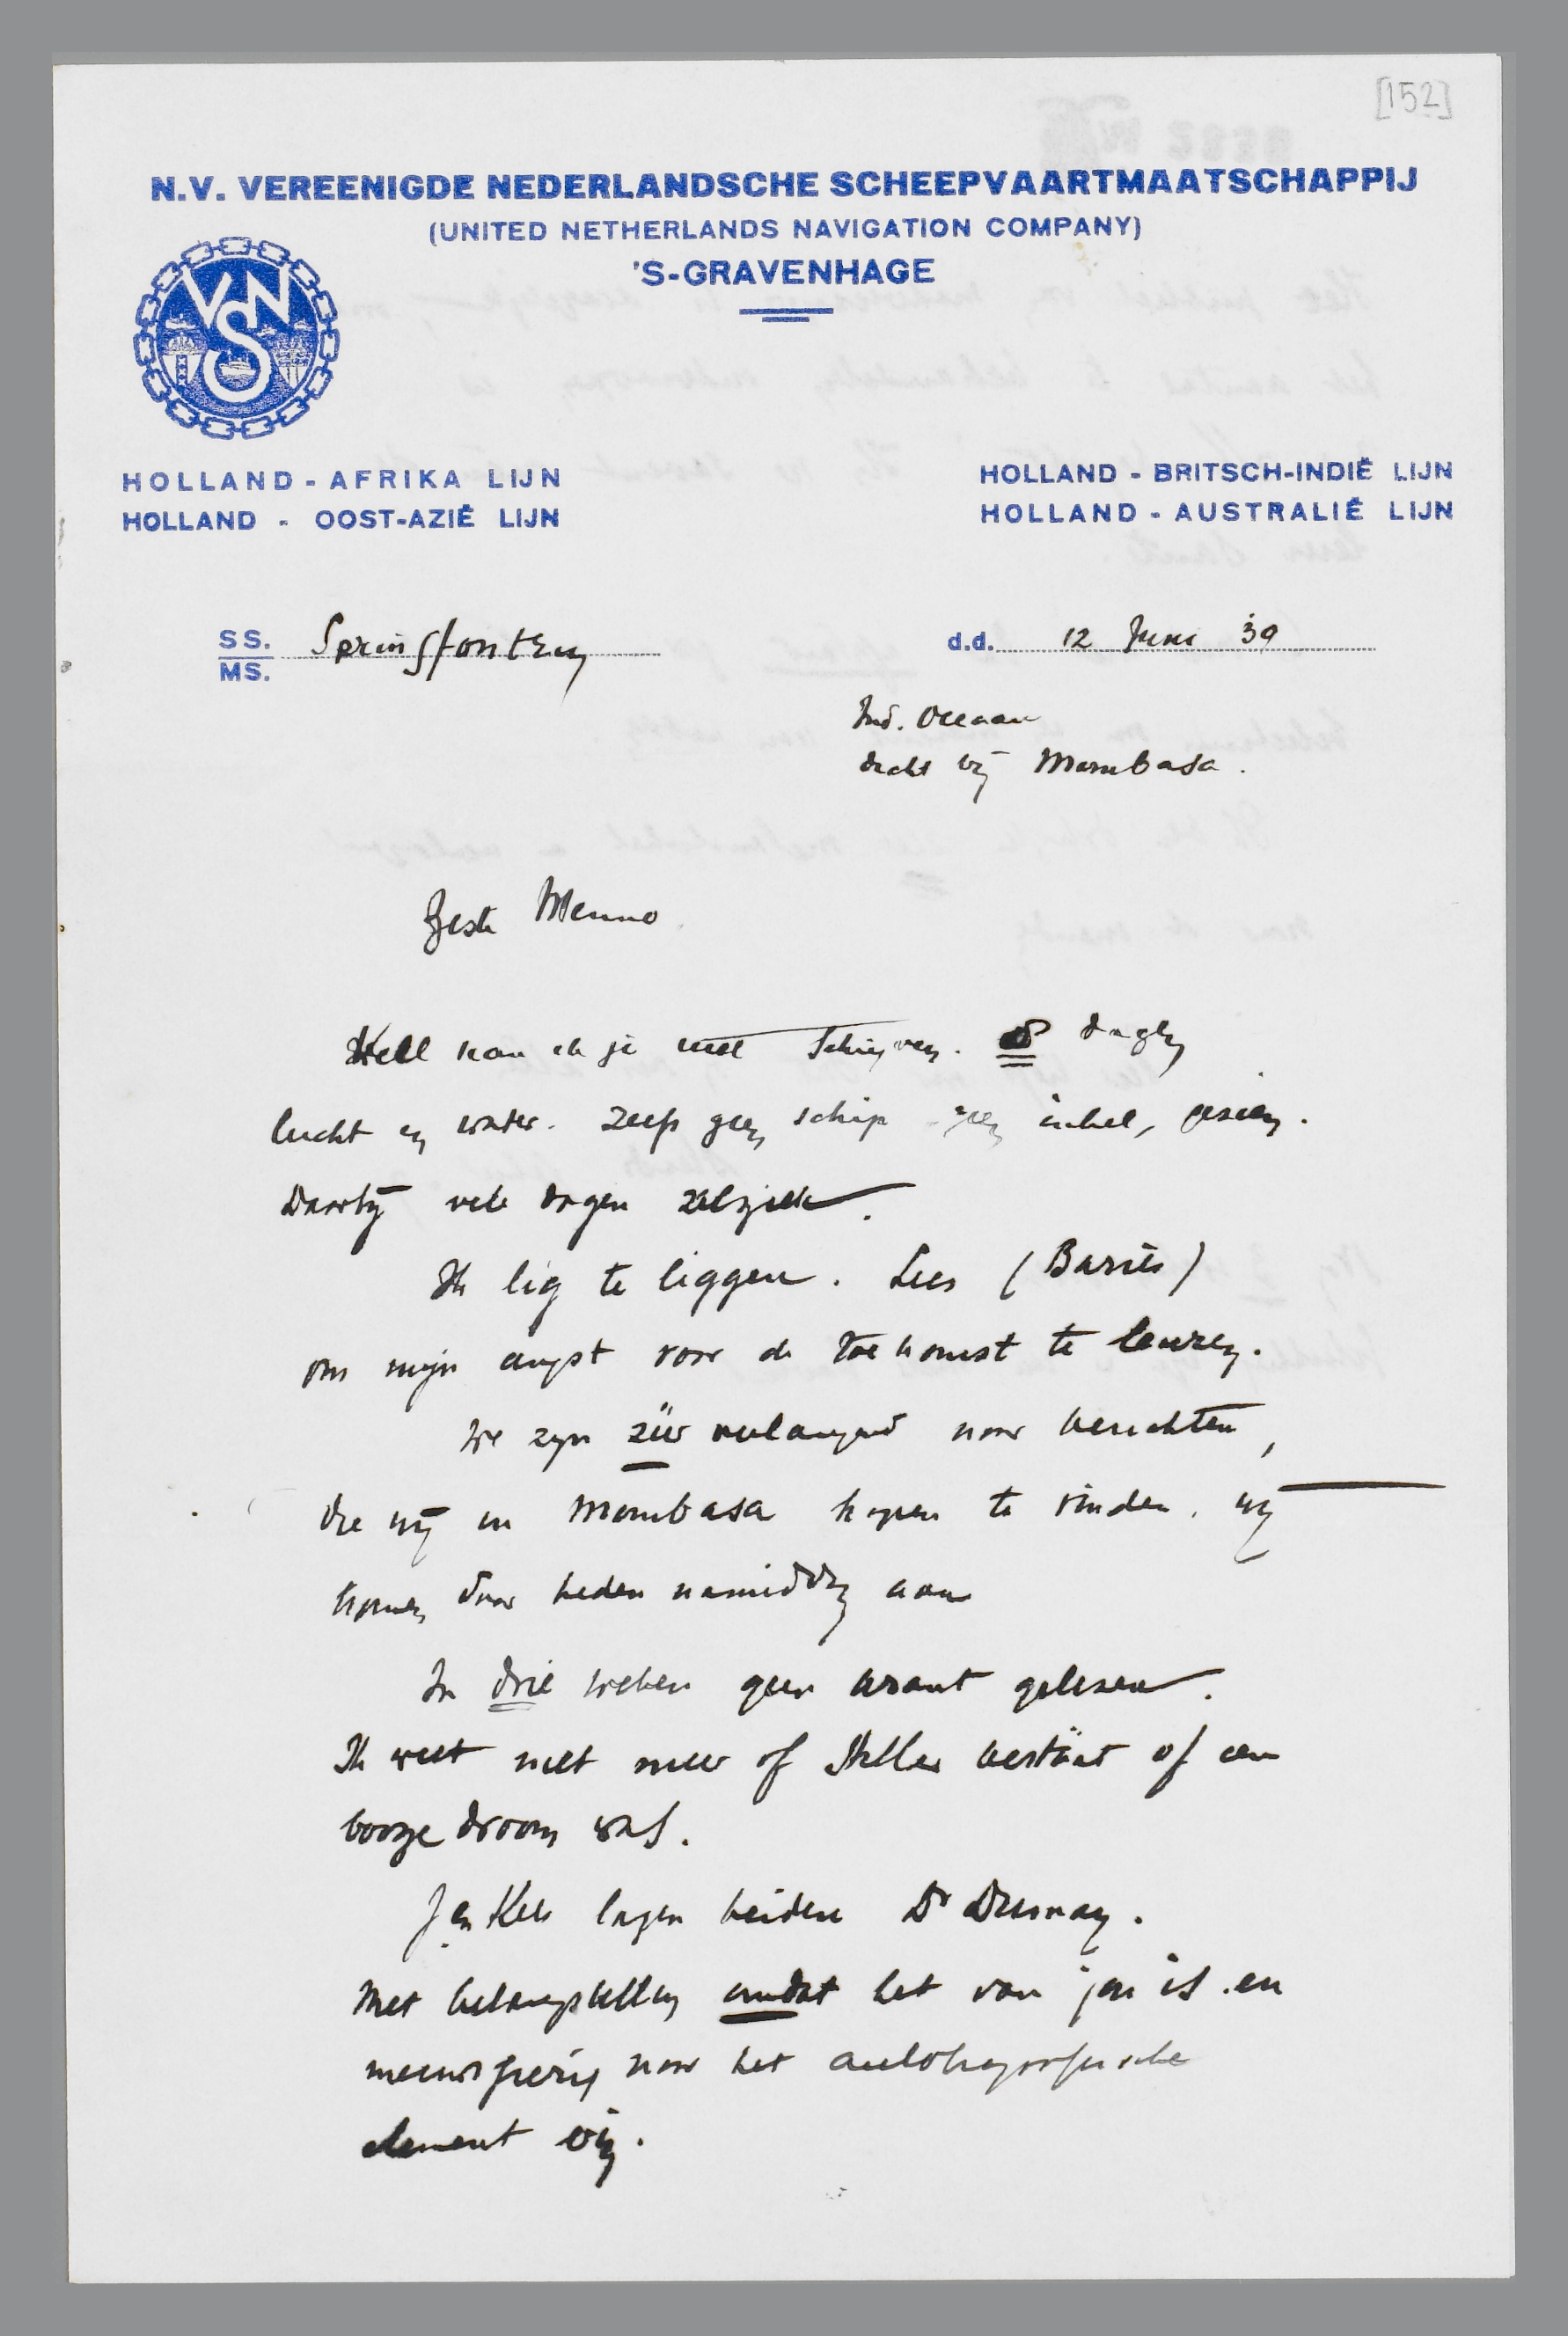 [152]
N.V. VEREENIGDE NEDERLANDSCHE SCHEEPVAARTMAATSCHAPPIJ
(UNITED NETHERLANDS NAVIGATION COMPANY)
'S-GRAVENHAGE
VNS
HOLLAND - AFRIKA LIJN
HOLLAND - OOST-AZIË LIJN
HOLLAND - BRITSCH-INDIË LIJN
HOLLAND - AUSTRALIË LIJN
SS. Springfontein
MS.
d.d. 12 Juni '39
Ind. Oceaan
dicht bij Mombasa.
Beste Menno
Veel kan ik je niet schrijven. 8 dagen
lucht en water. Zelfs geen schip geen enkel, gezien.
Daarbij vele dagen zeeziek.
Ik lig te liggen. Lees (Barrès)
om mijn angst voor de toekomst te
We zijn zéér verlangend naar berichten,
die wij in Mombasa hopen te vinden. Wij
komen daar heden namiddag aan
In drie weken geen krant gelezen.
Ik weet niet meer of Hitler bestáat of een
booze droom was.
J en Kees lazen beiden Dr Dumay.
Met belangstelling omdat het van jou is en
nieuwsgierig naar het autobiografische
element erin.